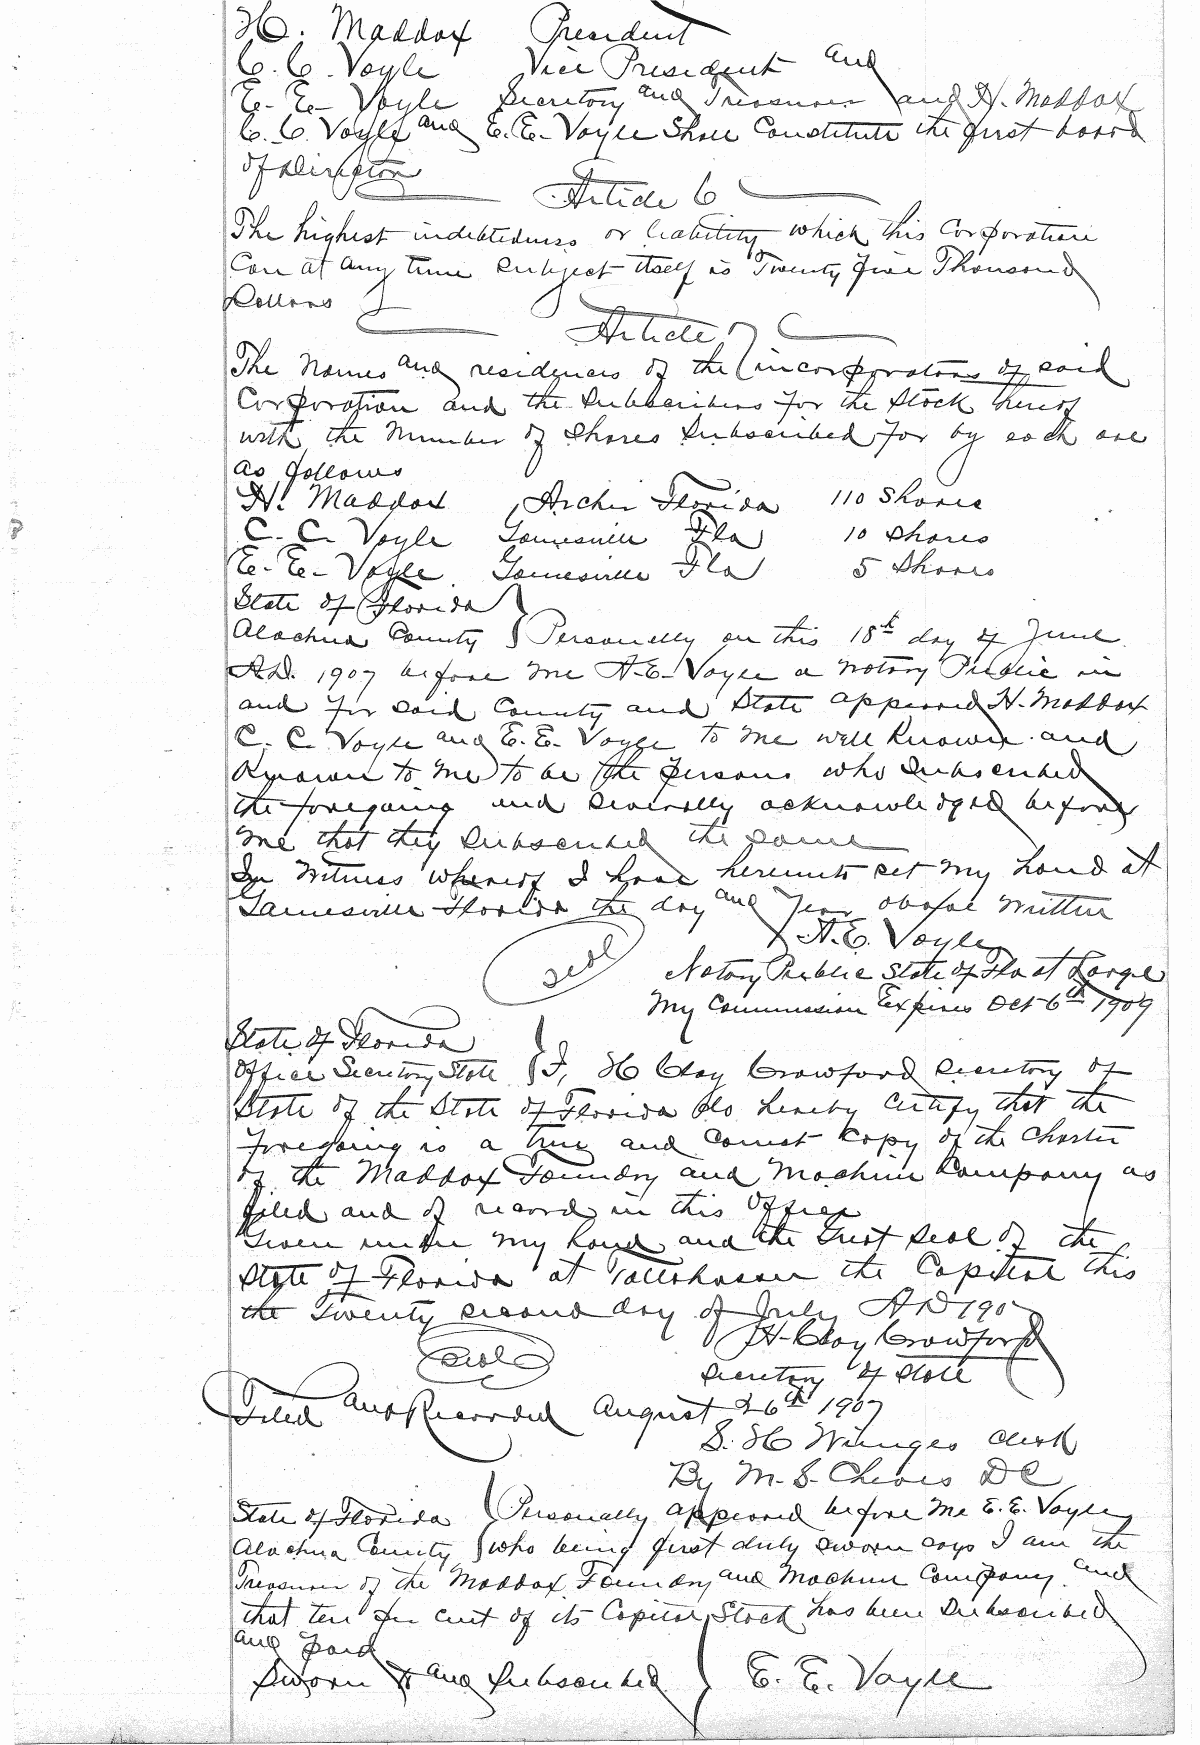 H. Maddox President
C. C. Voyle Vice President and
E. E. Voyle Secretory and Treasurer and H. Maddox
C. C. Voyle and E. E. Voyle Shall Constitute the first board
of Director
Article 6
The highest indebtedness or liability which this Corporation
Can at any time subject itself is Twenty five Thousand
Dollars
Article 7
The Names and residences of the incorporators of said
Corporation and the Subscribers for the Stock hereof
with the Number of Shares Subscribed for by each are
as follows
H. Maddox , Archer Florida 110 Shares
C. C. Voyle Gainesville Fla 10 Shares
E. E. Voyle Gainesville Fla 5 Shares
State of Florida
Alachua County } Personally on this 18th day of June
A.D. 1907 before me A. E. Voyle a Notary Public in
and for said County and State appeared H. Maddox
C. C. Voyle and E. E. Voyle to me well Known and
Known to me to be the persons who Subscribed
the foregoing and severally acknowledged before
me that they Subscribed the same
In Witness whereof I have hereunto set my hand at
Gainesville Florida the day and year above Written
A. E. Voyle
seal
Notary Public State of Fla at Large
My Commission Expires Oct 6th 1909
State of Florida
Office Secretory State } I, H Clay Crawford Secretory of
State of the State of Florida do hereby Certify that the
foregoing is a true and Correct Copy of the Charter
of the Maddox Foundry and Machine Company as
filed and of record in this Office
Given under my hand and the Great Seal of the
State of Florida at Tallahassee the Capital this
the Twenty second day of July A D 1907
H. Clay Crawford
seal
Secretory of State
Filed and Recorded August 26th 1907
S. H Wienges Clerk
By M. S. Cheves D C
State of Florida } Personally appeared before me E. E. Voyle
Alachua County } who being first duly sworn says I am the
Treasurer of the Maddox Foundry and Machine Company and
that ten per cent of its Capital Stock has been Subscribed
and paid
Sworn to and Subscribed } E. E. Voyle